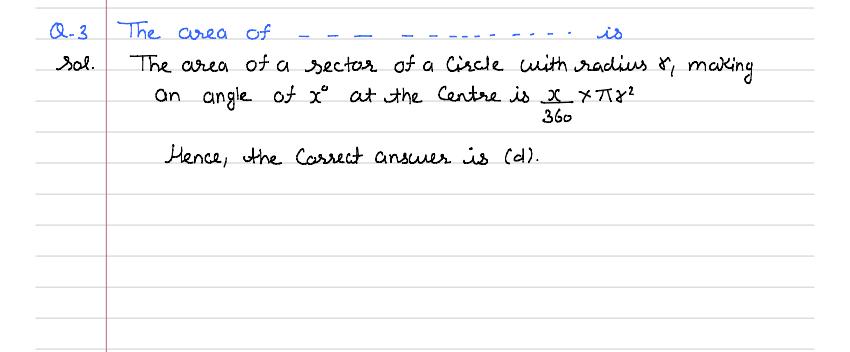 Q-3 The area of - - - - - - - - - - - - - is
Sol. The area of a sector of a Circle with radius r, making
an angle of x° at the Centre is x/360 × πr²
Hence, the Correct answer is (d).